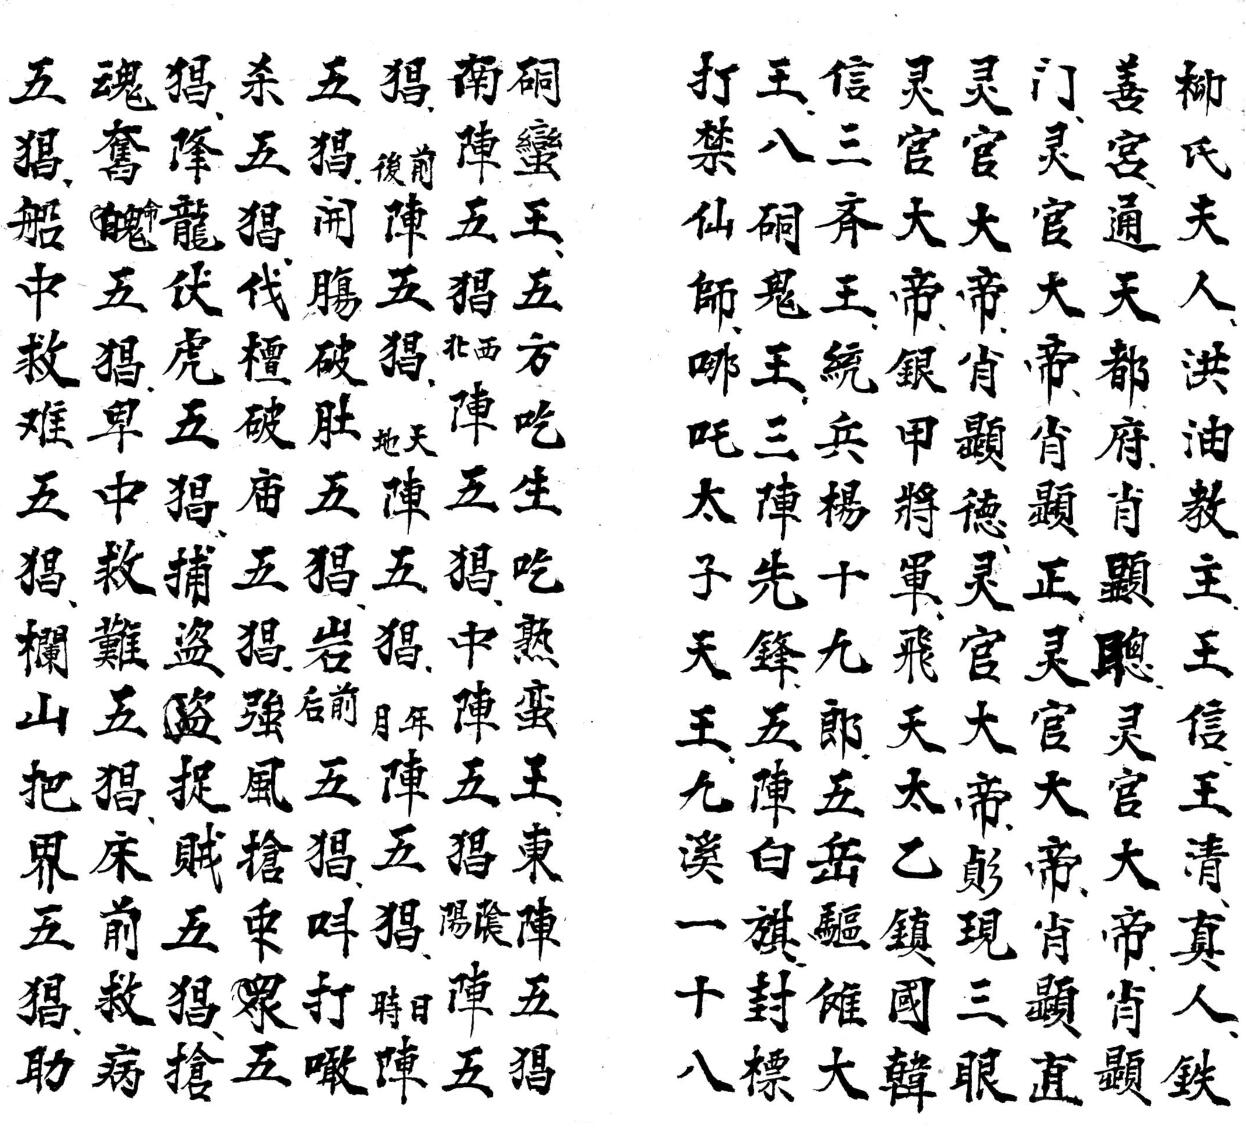 柳氏夫人、洪油教主、王信、王清、真人、鉄
善宮、通天都府、肖顯聰、灵官大帝、肖顯
门、灵官大帝、肖顕正、灵官大帝、肖顕直
灵官大帝、肖顯德、灵官大帝、彭現三眼
灵官大帝、銀甲將軍、飛天太乙鎮國韓
信三斉王、統兵楊十九郎、五岳驅傩大
王、八硐鬼王、三陣先鋒、五陣白旗、封標
打禁仙師、哪吒太子天王、九溪一十八
硐蠻王、五方吃生吃熟蛮王、東陣五猖
南陣五猖西北陣五猖、中陣五猖陰陽陣五
猖、前後陣五猖、天地陣五猖、年月陣五猖、日時陣
五猖、開腸破肚五猖、岩前后五猖、呌打噉
杀五猖、伐檀破庙五猖、強風搶眾五
猖、降龍伏虎五猖、捕盜捉賊五猖、搶
魂奪命五猖、卑中救難五猖、床前救病
五猖、船中救难五猖、欄山把界五猖、助